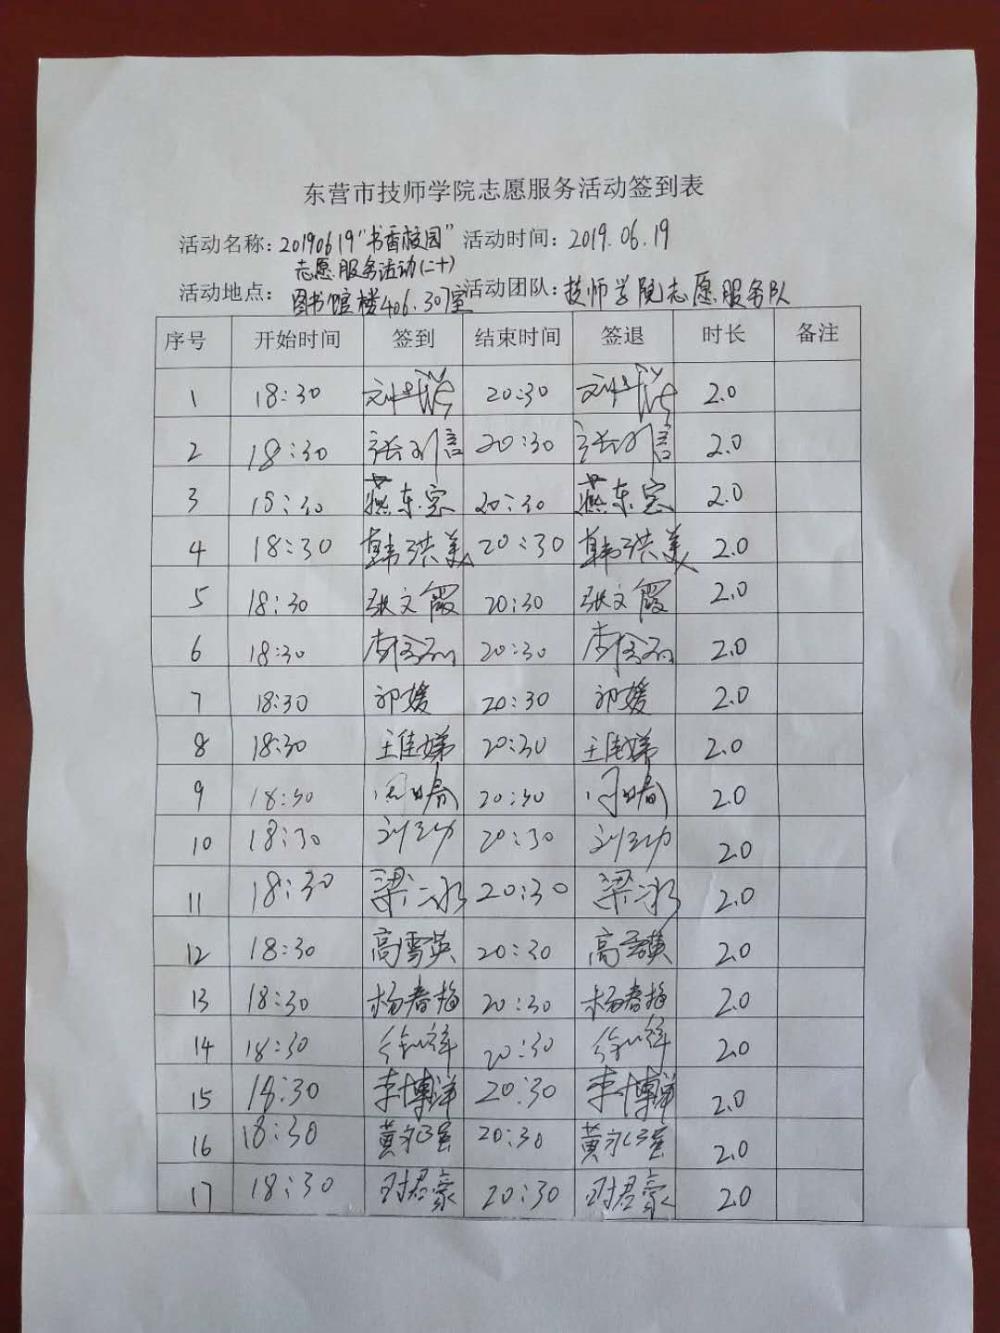 东营市技师学院志愿服务活动签到表
活动名称：20190619“书香校园” 活动时间：2019.06.19
志愿服务活动(二十)
活动地点：图书馆楼406.307室 活动团队：技师学院志愿服务队
序号 开始时间 签到 结束时间 签退 时长 备注
1 18:30 20:30 2.0
2 18:30 20:30 2.0
3 18:30 燕东宗 20:30 燕东宗 2.0
4 18:30 韩洪美 20:30 韩洪美 2.0
5 18:30 张文霞 20:30 张文霞 2.0
6 18:30 20:30 2.0
7 18:30 20:30 2.0
8 18:30 王佳娣 20:30 王佳娣 2.0
9 18:30 20:30 2.0
10 18:30 20:30 2.0
11 18:30 梁冰 20:30 梁冰 2.0
12 18:30 高雪英 20:30 高雪英 2.0
13 18:30 杨春梅 20:30 杨春梅 2.0
14 18:30 20:30 2.0
15 18:30 李博洋 20:30 李博洋 2.0
16 18:30 黄永强 20:30 黄永强 2.0
17 18:30 20:30 2.0